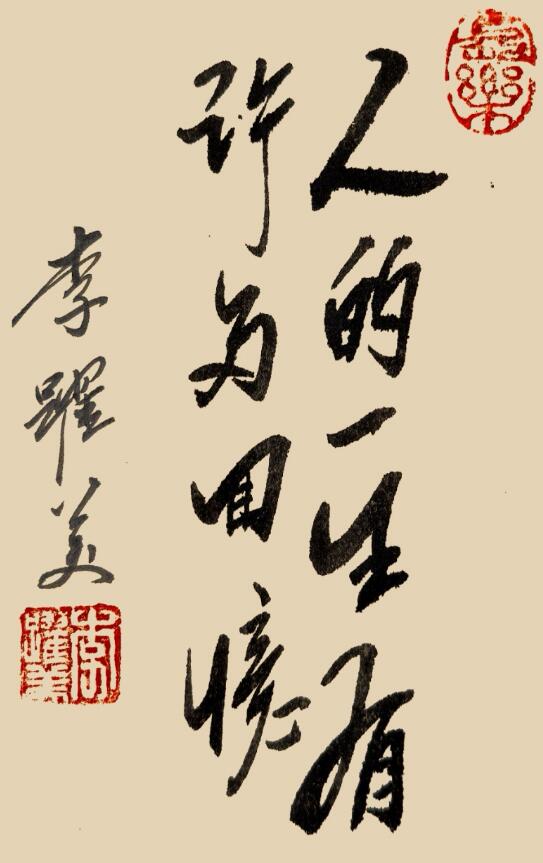 人的一生有
许多回忆
李躍美
李躍美